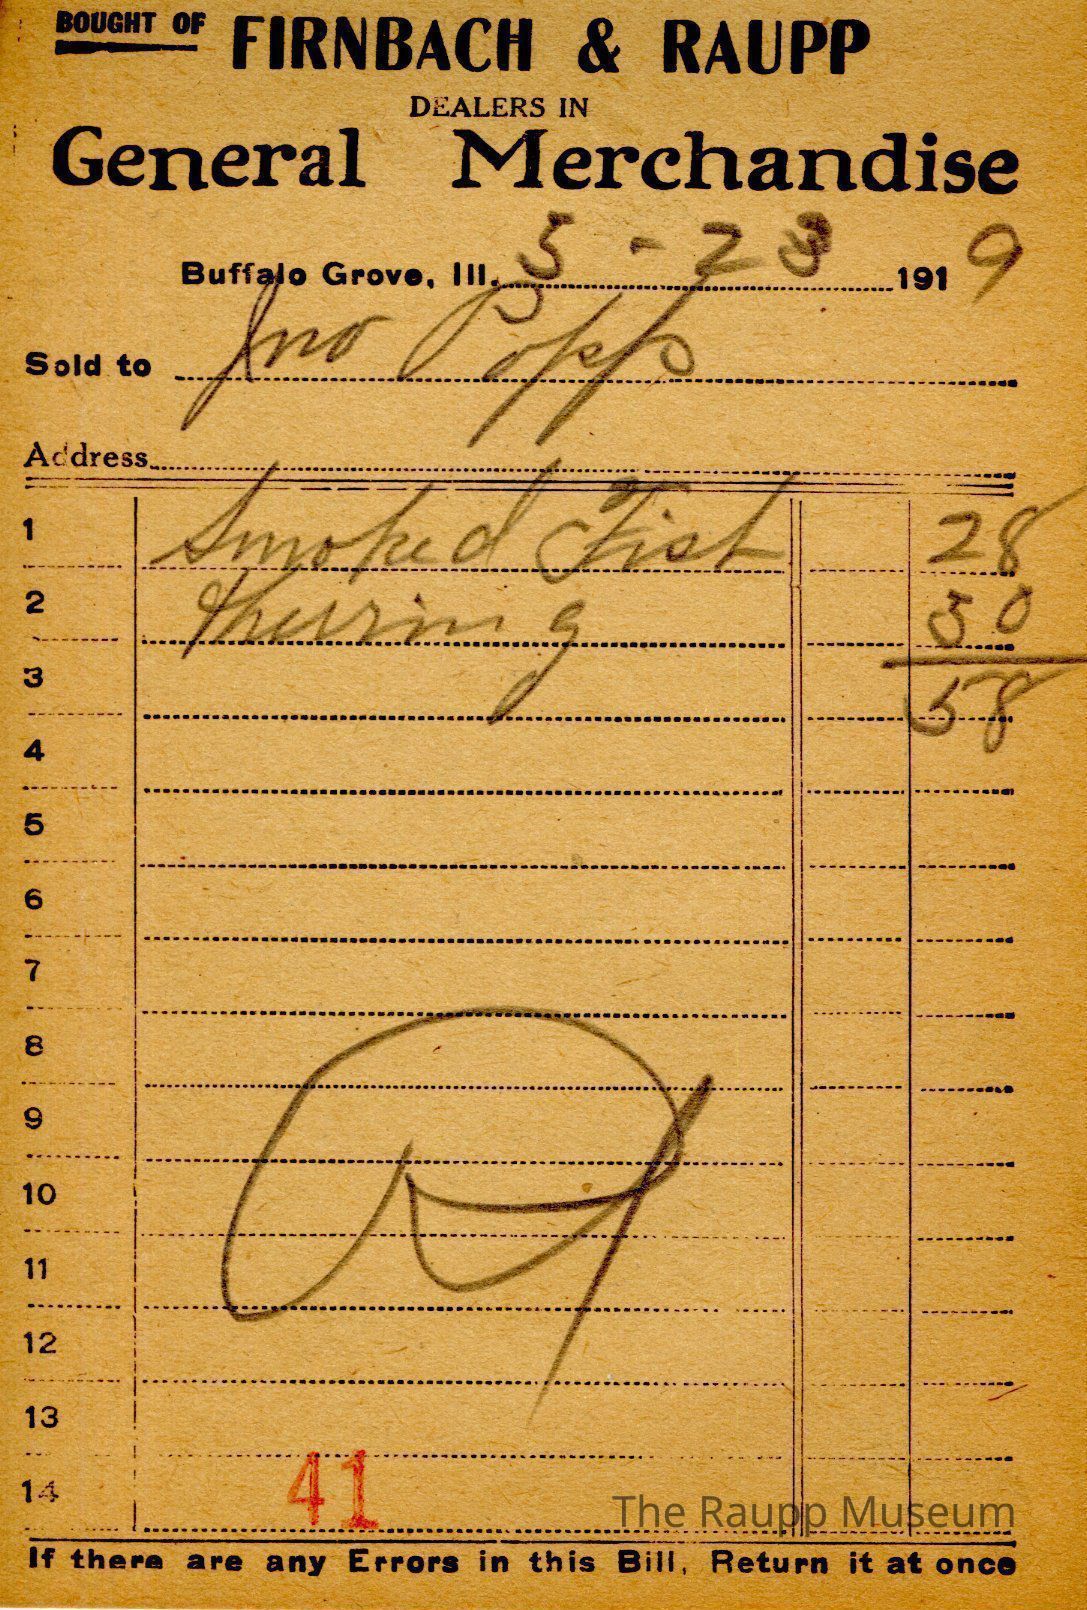 BOUGHT OF FIRNBACH & RAUPP
DEALERS IN
General Merchandise
Buffalo Grove, Ill. 5 - 23 1919
Sold to Jno Popp
Address
1 Smoked Fish 28
2 30
3 58
4
5
6
7
8
9
10
11
12
13
14 41
The Raupp Museum
If there are any Errors in this Bill, Return it at once